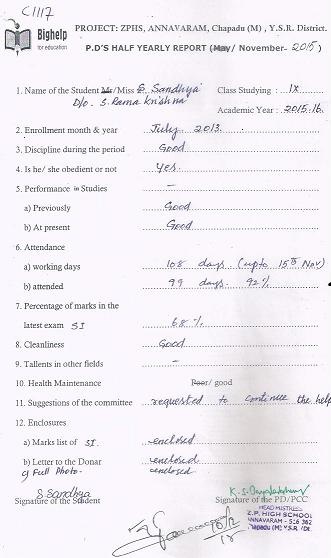 C1117
Bighelp
for education
PROJECT: ZPHS, ANNAVARAM, Chapadu (M) , Y.S.R. District.
P.D'S HALF YEARLY REPORT (May/ November- 2015)
1. Name of the Student Mr/Miss S. Sandhya Class Studying : IX
D/o. S. Rama Krishna
Academic Year : 2015-16.
2. Enrollment month & year July 2013.
3. Discipline during the period Good
4. Is he/ she obedient or not Yes.
5. Performance in Studies –
a) Previously Good
b) At present Good
6. Attendance
a) working days 108 days. (upto 15th Nov)
b) attended 99 days. 92%
7. Percentage of marks in the
latest exam SI 68%
8. Cleanliness Good
9. Tallents in other fields –
10. Health Maintenance Poor/ good
11. Suggestions of the committee requested to continue the help
12. Enclosures
a) Marks list of SI. enclosed
b) Letter to the Donar enclosed
c) Full Photo. enclosed
S. Sandhya
Signature of the Student
Signature of the PD/PCC
HEAD MISTRESS
Z.P. HIGH SCHOOL
ANNAVARAM - 516 362
Chapadu (M) Y.S.R (Dt)